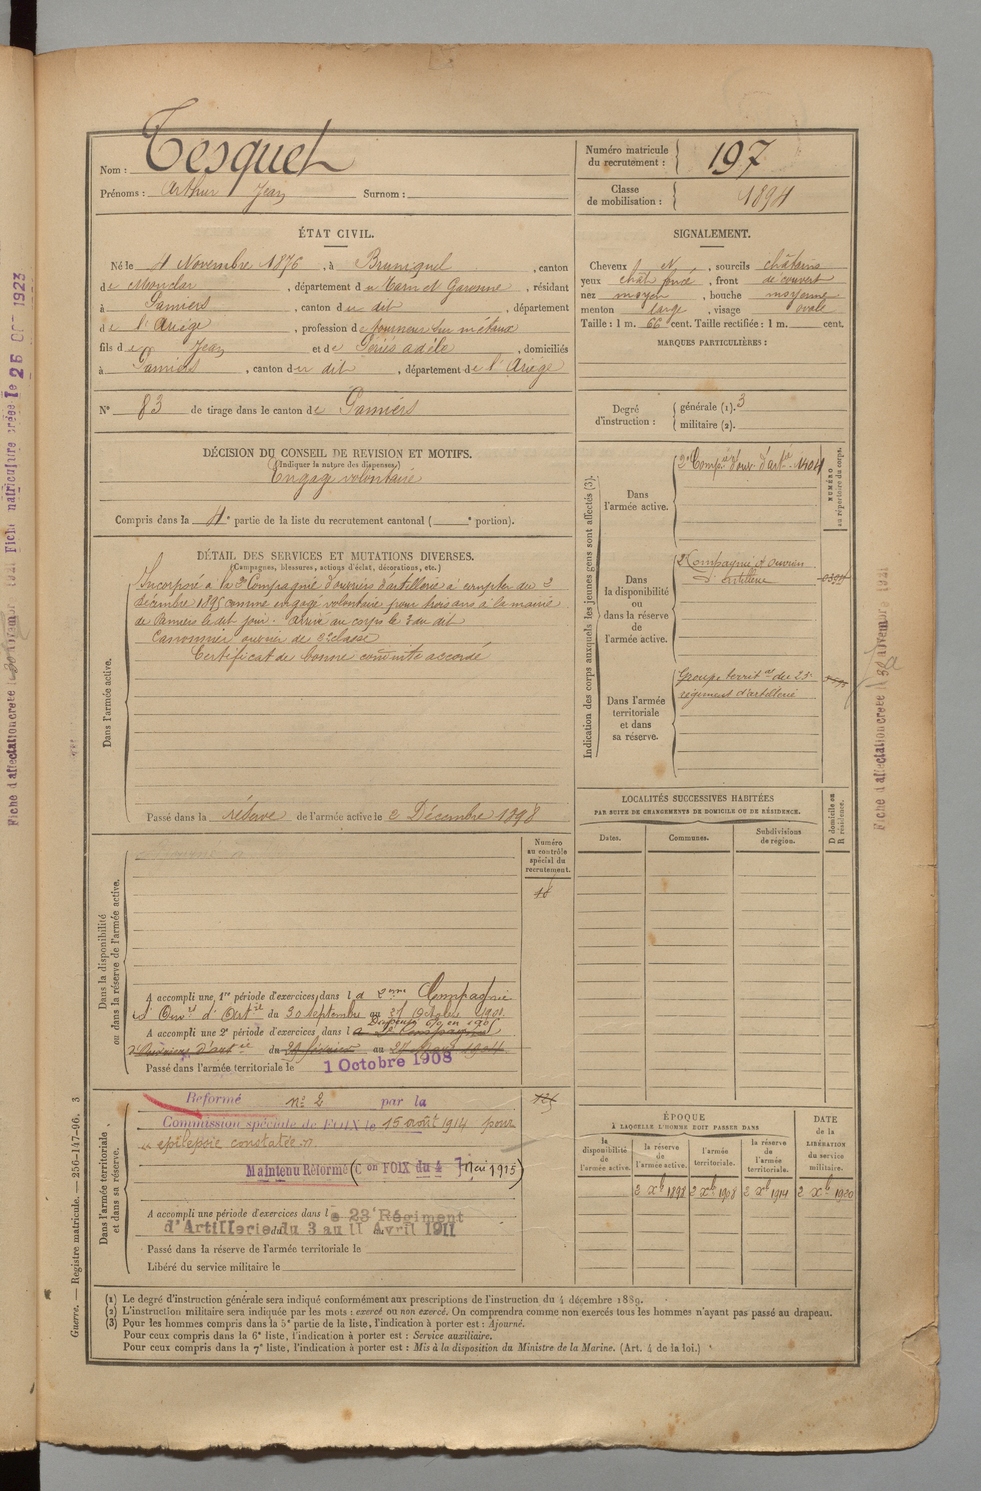 Nom : Tesquet
Prénoms : Arthur Jean Surnom :
Numéro matricule
du recrutement : 197
Classe
de mobilisation : 1894
ÉTAT CIVIL.
Né le 4 Novembre 1876, à Bruniquel, canton
de Monclar, département du Tarn et Garonne, résidant
à Pamiers, canton du dit, département
de l'Ariège, profession de tourneur sur métaux
fils de Jean et de Adèle, domiciliés
à Pamiers, canton du dit, département de l'Ariège
N° 83 de tirage dans le canton de Pamiers
SIGNALEMENT.
Cheveux, sourcils châtains
yeux chât foncé, front découvert
nez moyen, bouche moyenne
menton large, visage ovale
Taille : 1 m. 66 cent. Taille rectifiée : 1 m. cent.
MARQUES PARTICULIÈRES :
Degré
d'instruction : générale (1). 3
militaire (2).
DÉCISION DU CONSEIL DE REVISION ET MOTIFS.
(Indiquer la nature des dispenses.)
Engagé volontaire
Compris dans la 4e partie de la liste du recrutement cantonal ( e portion).
DÉTAIL DES SERVICES ET MUTATIONS DIVERSES.
(Campagnes, blessures, actions d'éclat, décorations, etc.)
Dans l'armée active.
Incorporé à la 3e Compagnie d'ouvriers d'artillerie à compter du 3
Décembre 1895 comme engagé volontaire pour trois ans à la mairie
de Pamiers le dit jour. Arrivé au corps le 3 du dit
Canonnier ouvrier de 2e classe
Certificat de bonne conduite accordé
Passé dans la réserve de l'armée active le 2 Décembre 1898
Indication des corps auxquels les jeunes gens sont affectés (3).
NUMÉRO
au répertoire du corps.
Dans
l'armée active.
3e Compie d'ouv. d'artie
Dans
la disponibilité
ou
dans la réserve
de
l'armée active.
2e Compagnie d'ouvriers
d'artillerie
Dans l'armée
territoriale
et dans
sa réserve.
Groupe territal des 23e
régiment d'artillerie
LOCALITÉS SUCCESSIVES HABITÉES
PAR SUITE DE CHANGEMENTS DE DOMICILE OU DE RÉSIDENCE.
Dates.
Communes.
Subdivisions
de région.
D domicile ou
R résidence.
Dans la disponibilité
ou dans la réserve de l'armée active.
Numéro
au contrôle
spécial du
recrutement.
18
A accompli une 1re période d'exercices dans la 2me Compagnie
d'Ouvrs d'Artie du 30 Septembre au 27 Octobre 1901.
A accompli une 2e période d'exercices dans la 2e Compagnie
Dispensé en 190
d'Ouvriers d'artie du 29 février au 27 Mars 1904
Passé dans l'armée territoriale le 1 Octobre 1908
Dans l'armée territoriale
et dans sa réserve.
Réformé n° 2 par la
Commission spéciale de FOIX le 15 août 1914 pour
épilepsie constatée
Maintenu Réformé (Con FOIX du 4 7 mai 1915)
A accompli une période d'exercices dans le 23e Régiment
d'Artillerie du 3 au 11 Avril 1911
Passé dans la réserve de l'armée territoriale le
Libéré du service militaire le
ÉPOQUE
À LAQUELLE L'HOMME DOIT PASSER DANS
la
disponibilité
de
l'armée active.
la réserve
de
l'armée active.
l'armée
territoriale.
la réserve
de
l'armée
territoriale.
DATE
de la
LIBÉRATION
du service
militaire.
2 Xb 1898
2 Xb 1908
2 Xb 1914
2 Xb 1920
(1) Le degré d'instruction générale sera indiqué conformément aux prescriptions de l'instruction du 4 décembre 1889.
(2) L'instruction militaire sera indiquée par les mots : exercé ou non exercé. On comprendra comme non exercés tous les hommes n'ayant pas passé au drapeau.
(3) Pour les hommes compris dans la 5e partie de la liste, l'indication à porter est : Ajourné.
Pour ceux compris dans la 6e liste, l'indication à porter est : Service auxiliaire.
Pour ceux compris dans la 7e liste, l'indication à porter est : Mis à la disposition du Ministre de la Marine. (Art. 4 de la loi.)
Guerre. — Registre matricule. — 256-147-96. 3